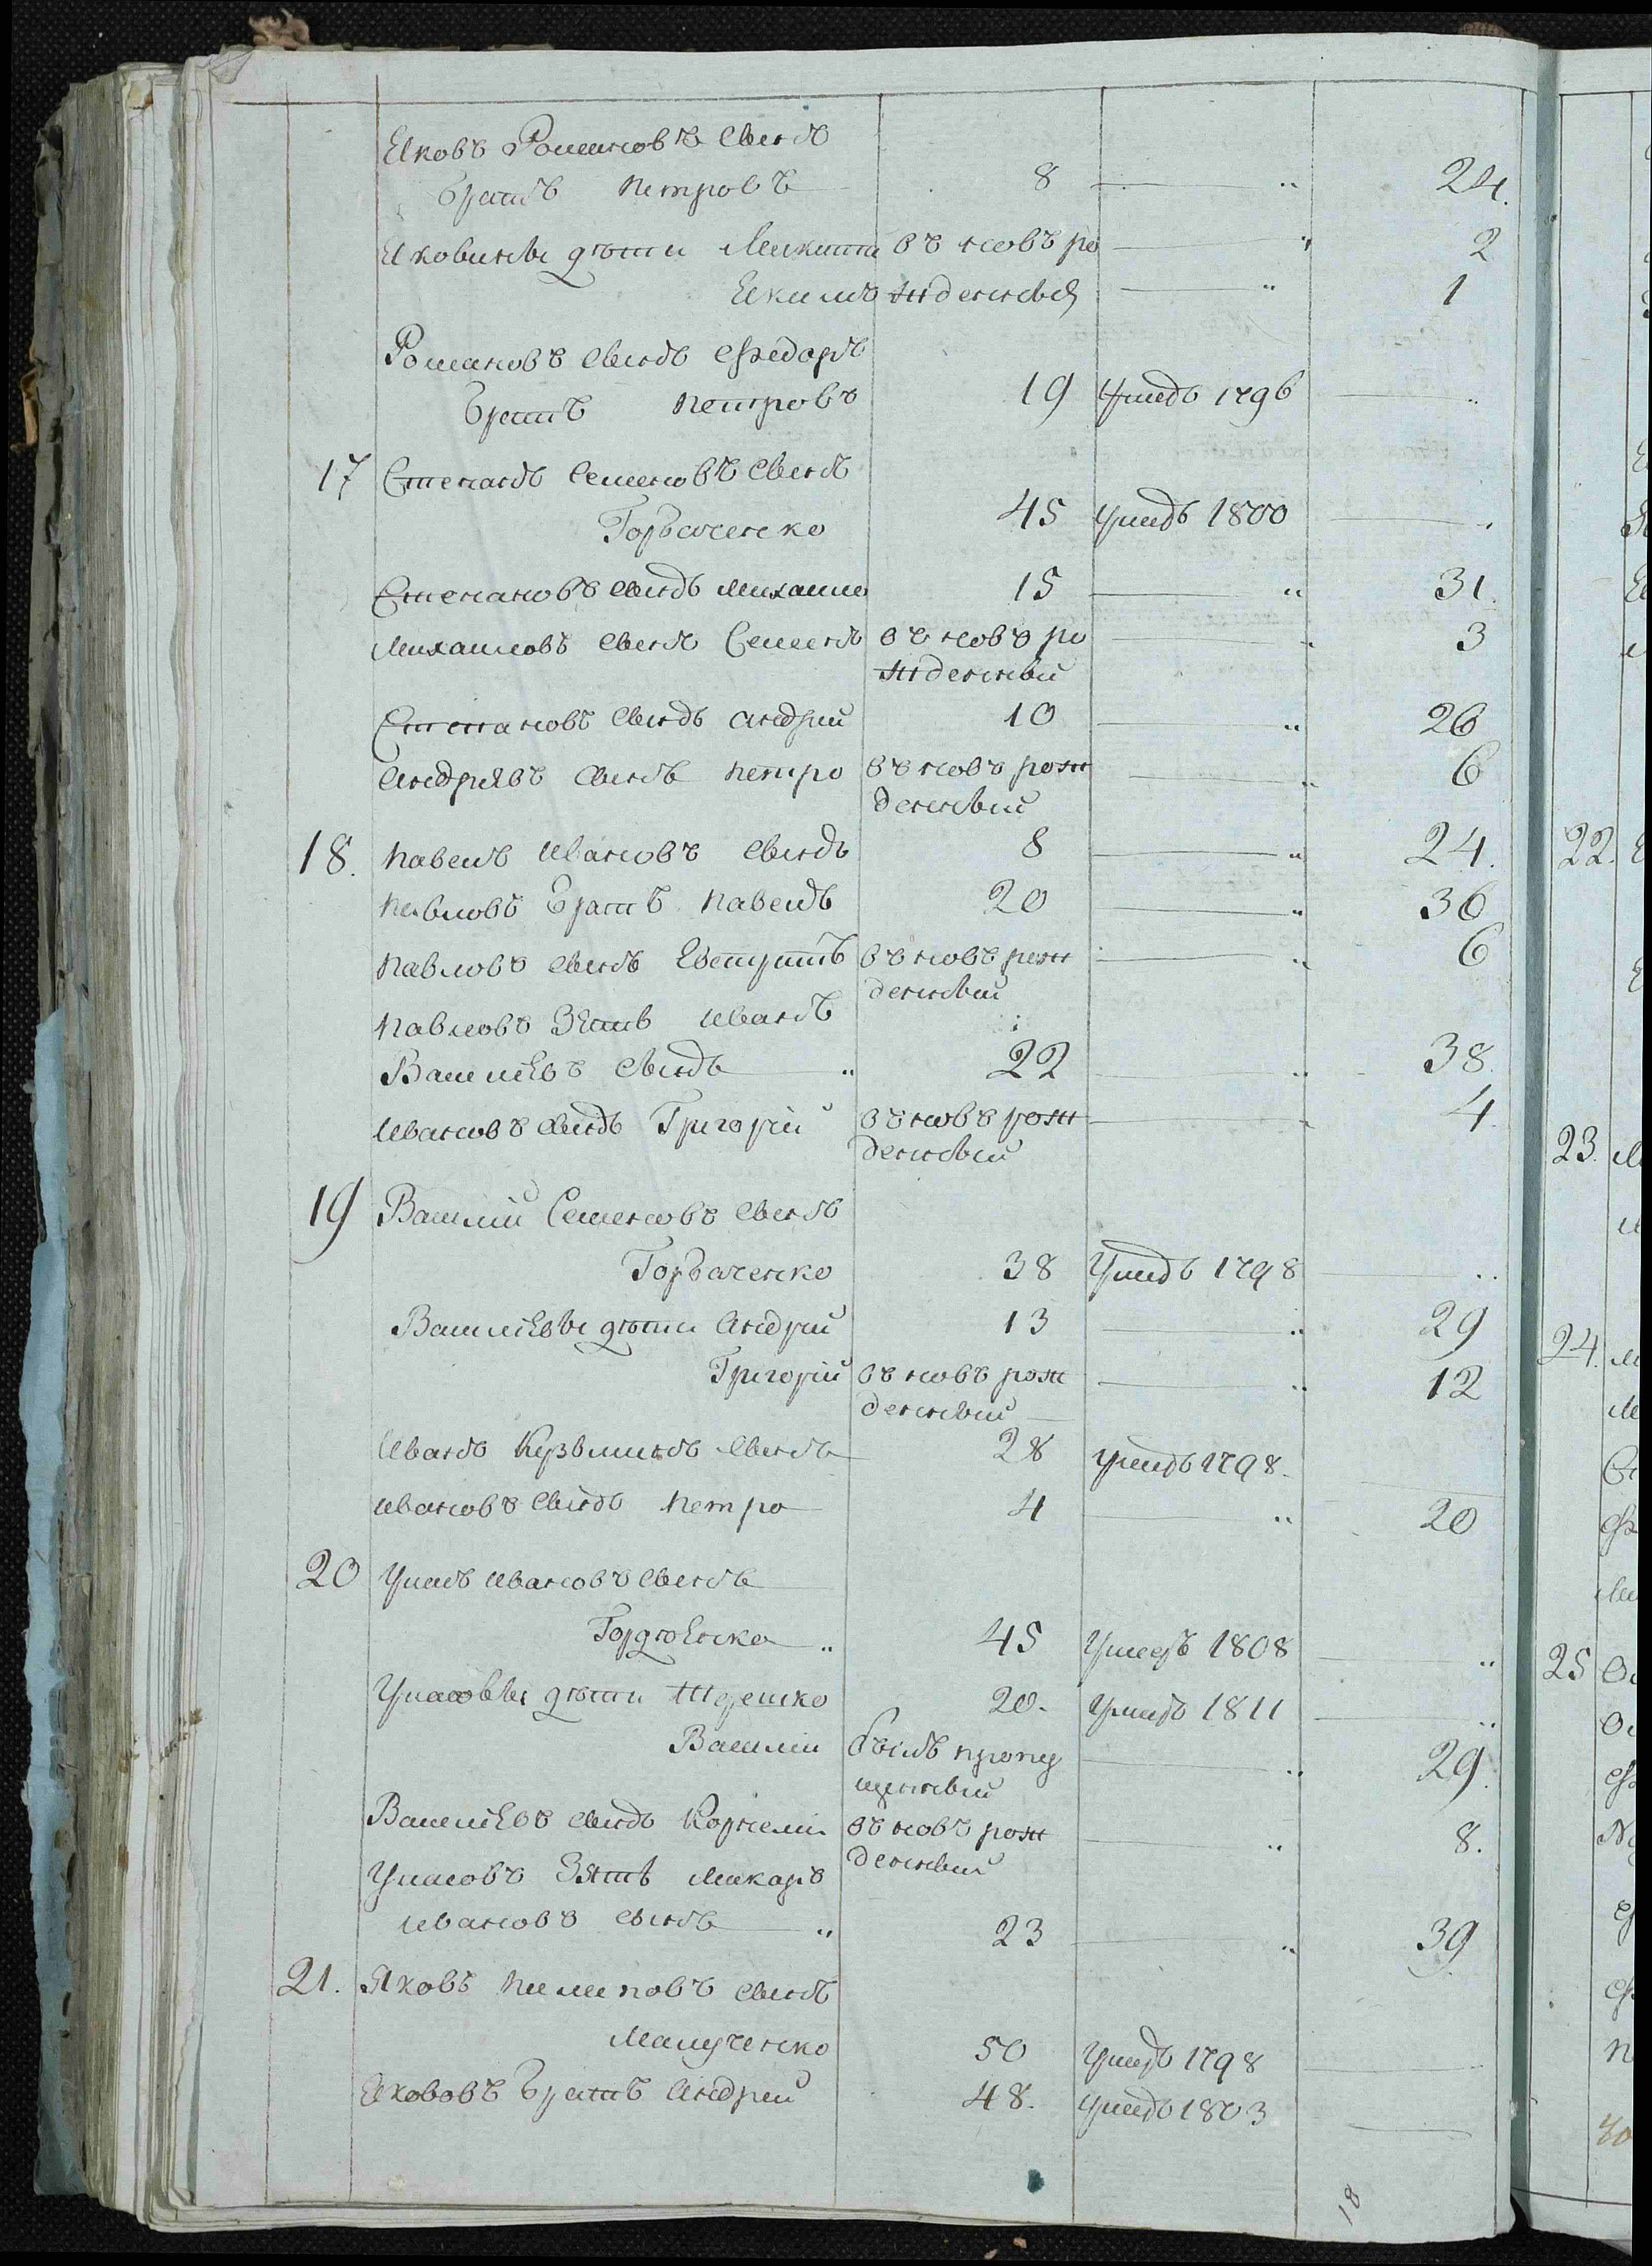 Яковъ Романовъ сынъ
братъ Петровъ 8 — 24.
Яковины дѣти Микита въ новъ ро — 2
Якимъ жденныя — 1
Романовъ сынъ Федоръ
братъ Петровъ 19 Умеръ 1796 —
17 Степанъ Семеновъ сынъ
Горбаченко 45 умеръ 1800 —
Степановъ сынъ Михаило 15 — 31.
Михаиловъ сынъ Семенъ въ новъ ро — 3
жденный
Степановъ сынъ Андрій 10 — 26
Андріявъ сынъ Петро въ новъ рож — 6
денный
18. Павелъ Ивановъ сынъ 8 — 24.
Павловъ братъ Павелъ 20 — 36
Павловъ сынъ въ новъ рож — 6
денный
Павловъ Зять Иванъ
Василіевъ сынъ 22 — 38.
Ивановъ сынъ Григорій въ новъ рож — 4.
денный
19 Василій Семеновъ сынъ
Горбаченко 38 Умеръ 1798 —
Василіевы дѣти Андрій 13 — 29
Григорій въ новъ рож — 12
денный
Иванъ Кузьминъ сынъ 28 умеръ 1798.
Ивановъ сынъ Петро 4 — 20
20 Ивановъ сынъ
Гордіенко 45 Умеръ 1808 —
дѣти Терешко 20. Умеръ 1811 —
Василій былъ пропу — 29.
щенный
Василіевъ сынъ Корнели въ новъ рож — 8.
денный
Зять Макаръ
Ивановъ сынъ 23 — 39
21. Яковъ Пилиповъ сынъ
50 Умеръ 1798 —
Якововъ братъ Андрей 48. умеръ 1803 —
18
22.
23.
24.
25